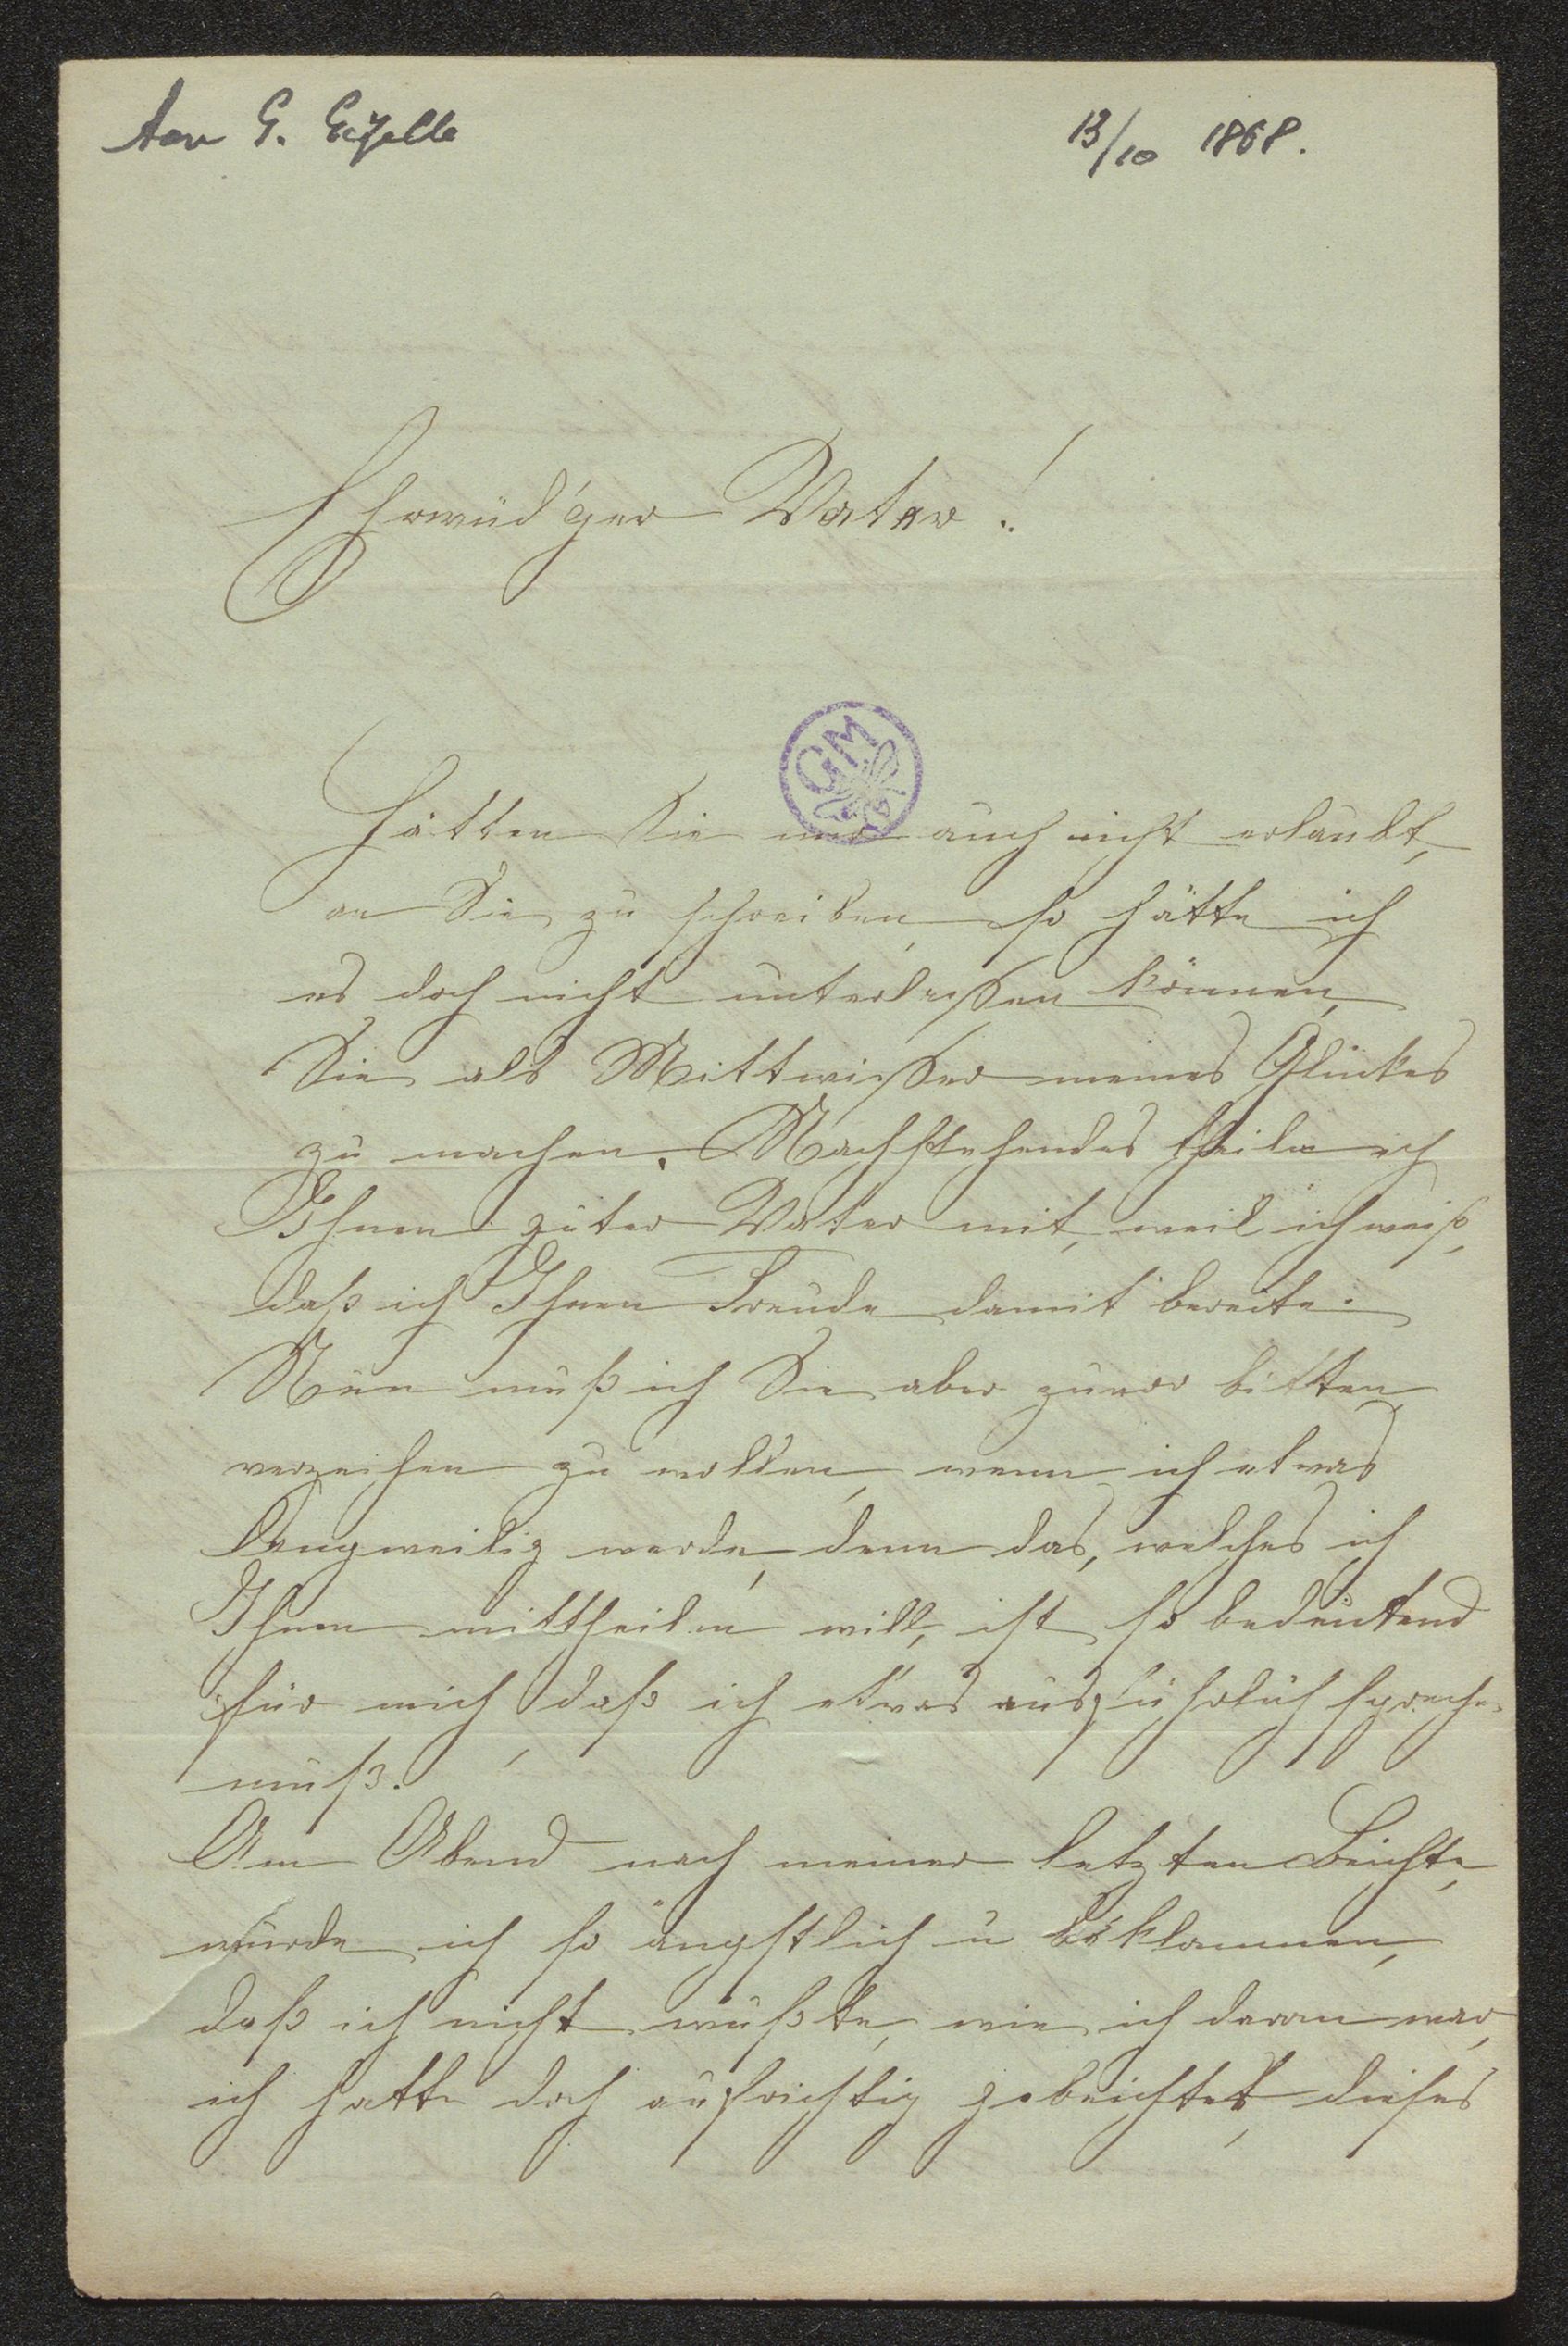 G.
13/10 1868.
Ehrwüd'ger Vater!
GM
Hätten Sie mir auch nicht erlaubt,
an Sie zu schreiben, so hätte ich
es doch nicht unterlassen können,
Sie als Mittwisser meines Glückes
zu machen. Nachstehendes theile ich
Ihnen guter Vater mit, weil ich weiß,
daß ich Ihnen Freude damit bereite.
Nun muß ich Sie aber zuvor bitten,
verzeihen zu wollen, wenn ich etwas
langweilig werde, denn das, welches ich
Ihnen mittheilen will, ist so bedeutend
für mich, daß ich etwas ausführlich sprechen
muß.
Am Abend nach meiner letzten Beichte,
wurde ich so ängstlich u beklommen,
daß ich nicht wußte, wie ich daran war,
ich hatte doch aufrichtig gebeichtet, dieses